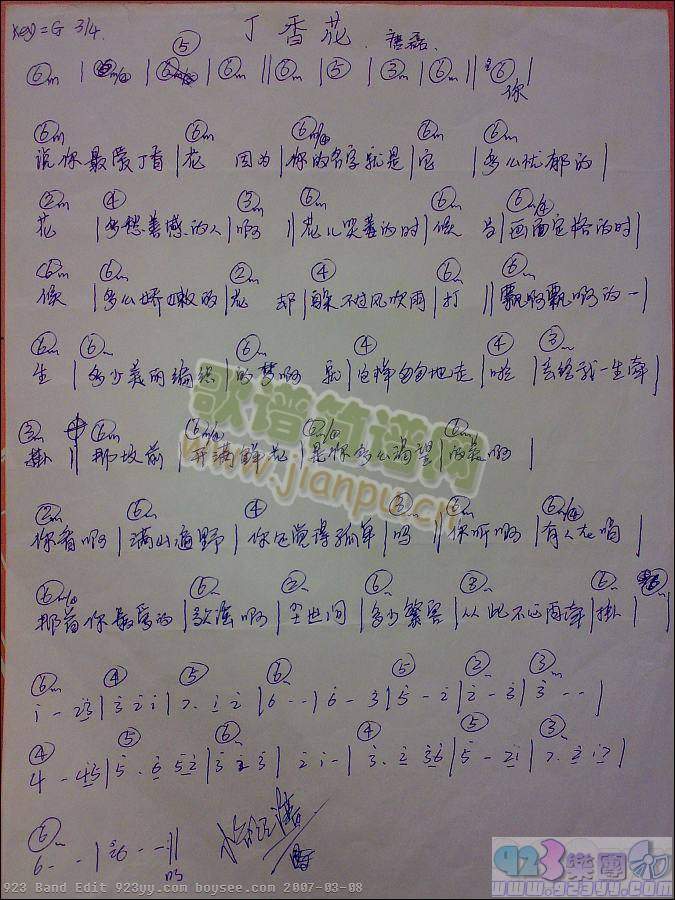 Key=G 3/4. 丁香花 唐磊
⑥m | ⑥m | ⑤ | ⑥m || ⑥m | ⑤ | ③m | ⑥m || ⑥ | 你
⑥m ⑥m ⑥m/④ ⑥m ⑥m
说你最爱丁香 | 花 因为 | 你的名字就是 | 它 | 多么忧郁的 |
②m ④ ③m ⑥m ⑥m/④
花 | 多愁善感的人 | 啊 || 花儿哭萎的时 | 候 当 | 画面定格的时 |
⑥m ⑥m ②m ④ ⑥m ⑥m
候 | 多么娇嫩的 | 花 却 | 躲不过风吹雨 | 打 || 飘啊飘啊的一 |
⑥m ⑥m ⑥m ④ ④ ③m
生 | 多少美丽编织 | 的梦啊 就 | 这样匆匆地走 | 啦 | 丢给我一生牵 |
③m ⑥m ⑥m/④ ⑥m/④ ⑥m
挂 || 那坟前 | 开满鲜花 | 是你多么渴望 | 的美啊 |
②m ⑥m ④ ③m ⑥m ⑥m/④
你看啊 | 满山遍野 | 你还觉得孤单 | 吗 || 你听啊 | 有人在唱 |
⑥m/④ ⑥m ②m ⑥m ③m ⑥m
那首你最爱的 | 歌谣啊 | 尘世间 | 多少繁华 | 从此不必再牵 | 挂 |
⑥m ④ ⑤ ⑥m ⑤ ②m ③m
i - 23 | 3 2 i | 7. i 2 | 6 - - | 6 - 3 | 5 - 2 | 2 - 3 | 3 - - |
④ ⑤ ⑥m ④ ⑤ ③m
4 - 45 | 5. 6 52 | 3 2 3 | 2 i - | 3. 2 36 | 5 - 2i | 7.
⑥m
6 - - | 26 - - ||
吗
歌谱简谱网
www.jianpu.cn
923 Band Edit 923yy.com boysee.com 2007-03-08
923樂團
www.923yy.com